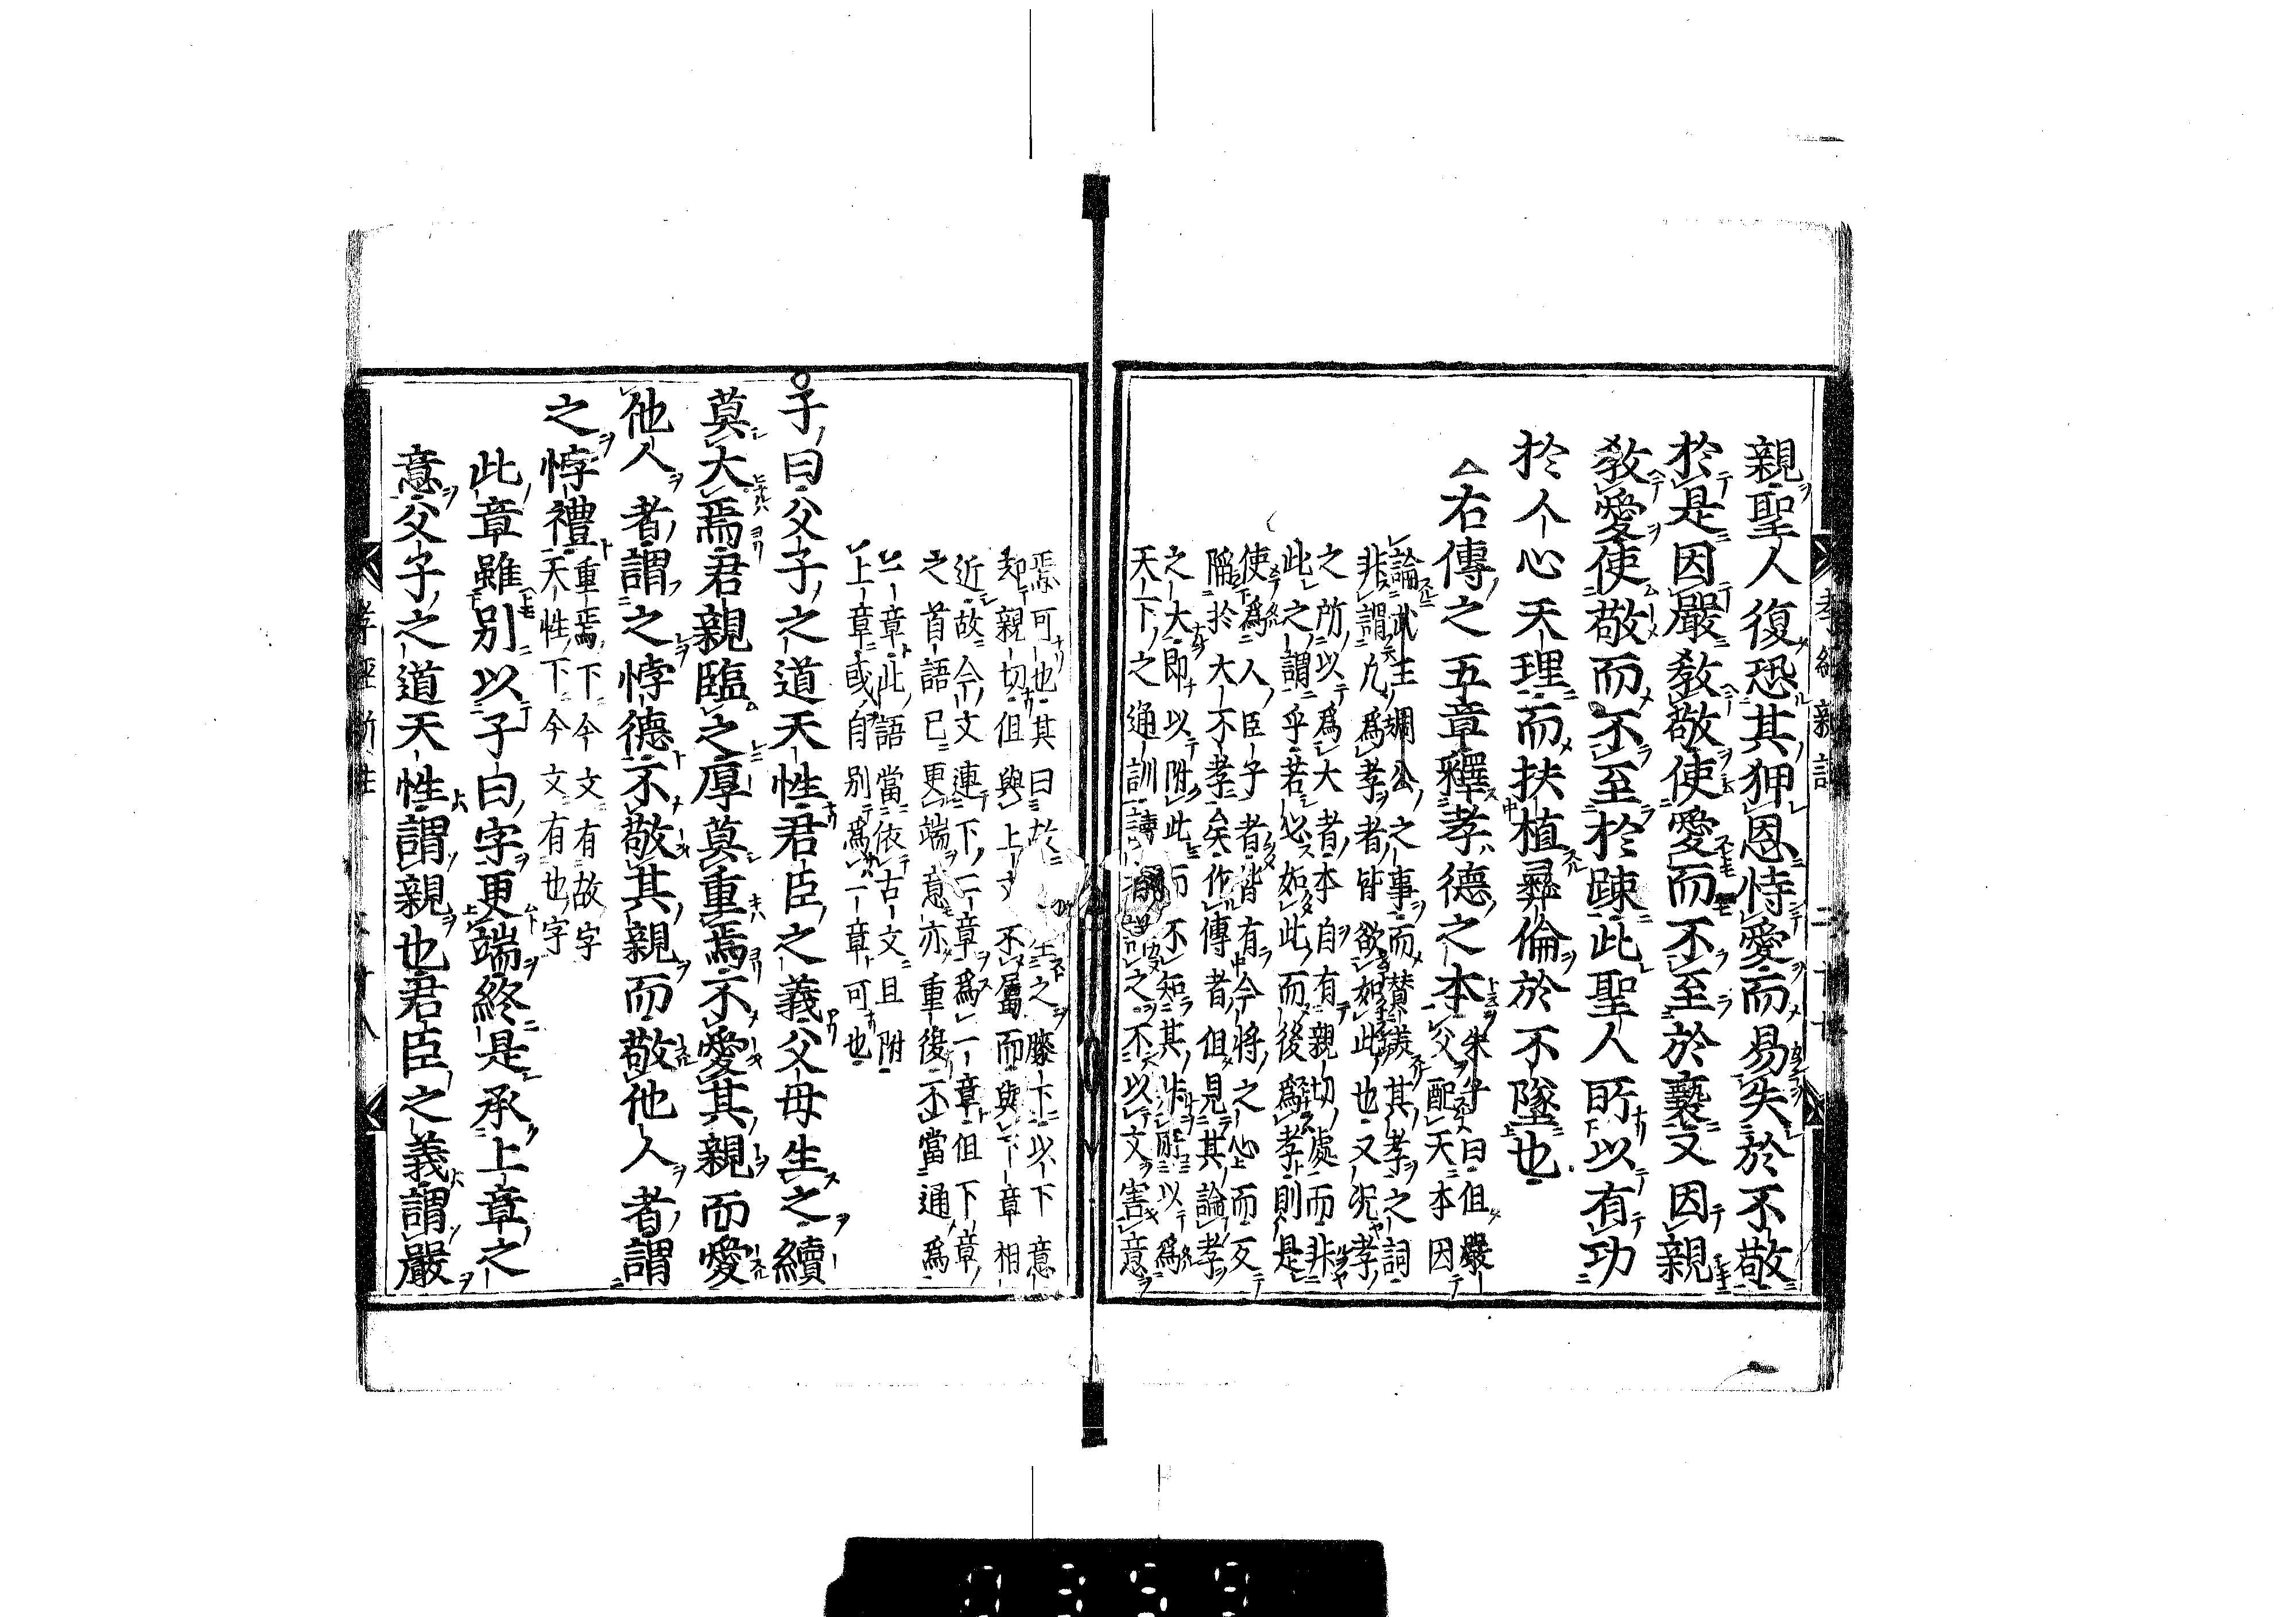 親聖人復恐其狎恩恃愛而易失於不敬
於是因嚴敎敬使愛而不至於褻又因親
敎愛使敬而不至於踈此聖人所以有功
於人心天理而扶植彛倫於不墜也
△右傳之五章釋孝德之本
朱子曰但嚴
父配天本因
論武王周公之事而賛美其孝之詞
非謂凡爲孝者皆欲如此也又况孝
之所以爲大者本自有親切處而非
此之謂乎若必如此而後爲孝則是
使爲人臣子者皆有今將之心而反
陷於大不孝矣作傳者但見其論孝
之大即以附此而不知其非所以爲
天下之通訓讀者詳之不以文害意
焉可也其曰故生之膝下以下意
却親切但與上文不屬而與下章相
近故今文連下二章爲一章但下章
之首語已更端意亦重複不當通爲
一章此語當依古文且附
上章或自別爲一章可也
子曰父子之道天性君臣之義父母生之續
莫大焉君親臨之厚莫重焉不愛其親而愛
他人者謂之悖德不敬其親而敬他人者謂
之悖禮
重焉下今文有故字
天性下今文有也字
此章雖別以子曰字更端終是承上章之
意父子之道天性謂親也君臣之義謂嚴